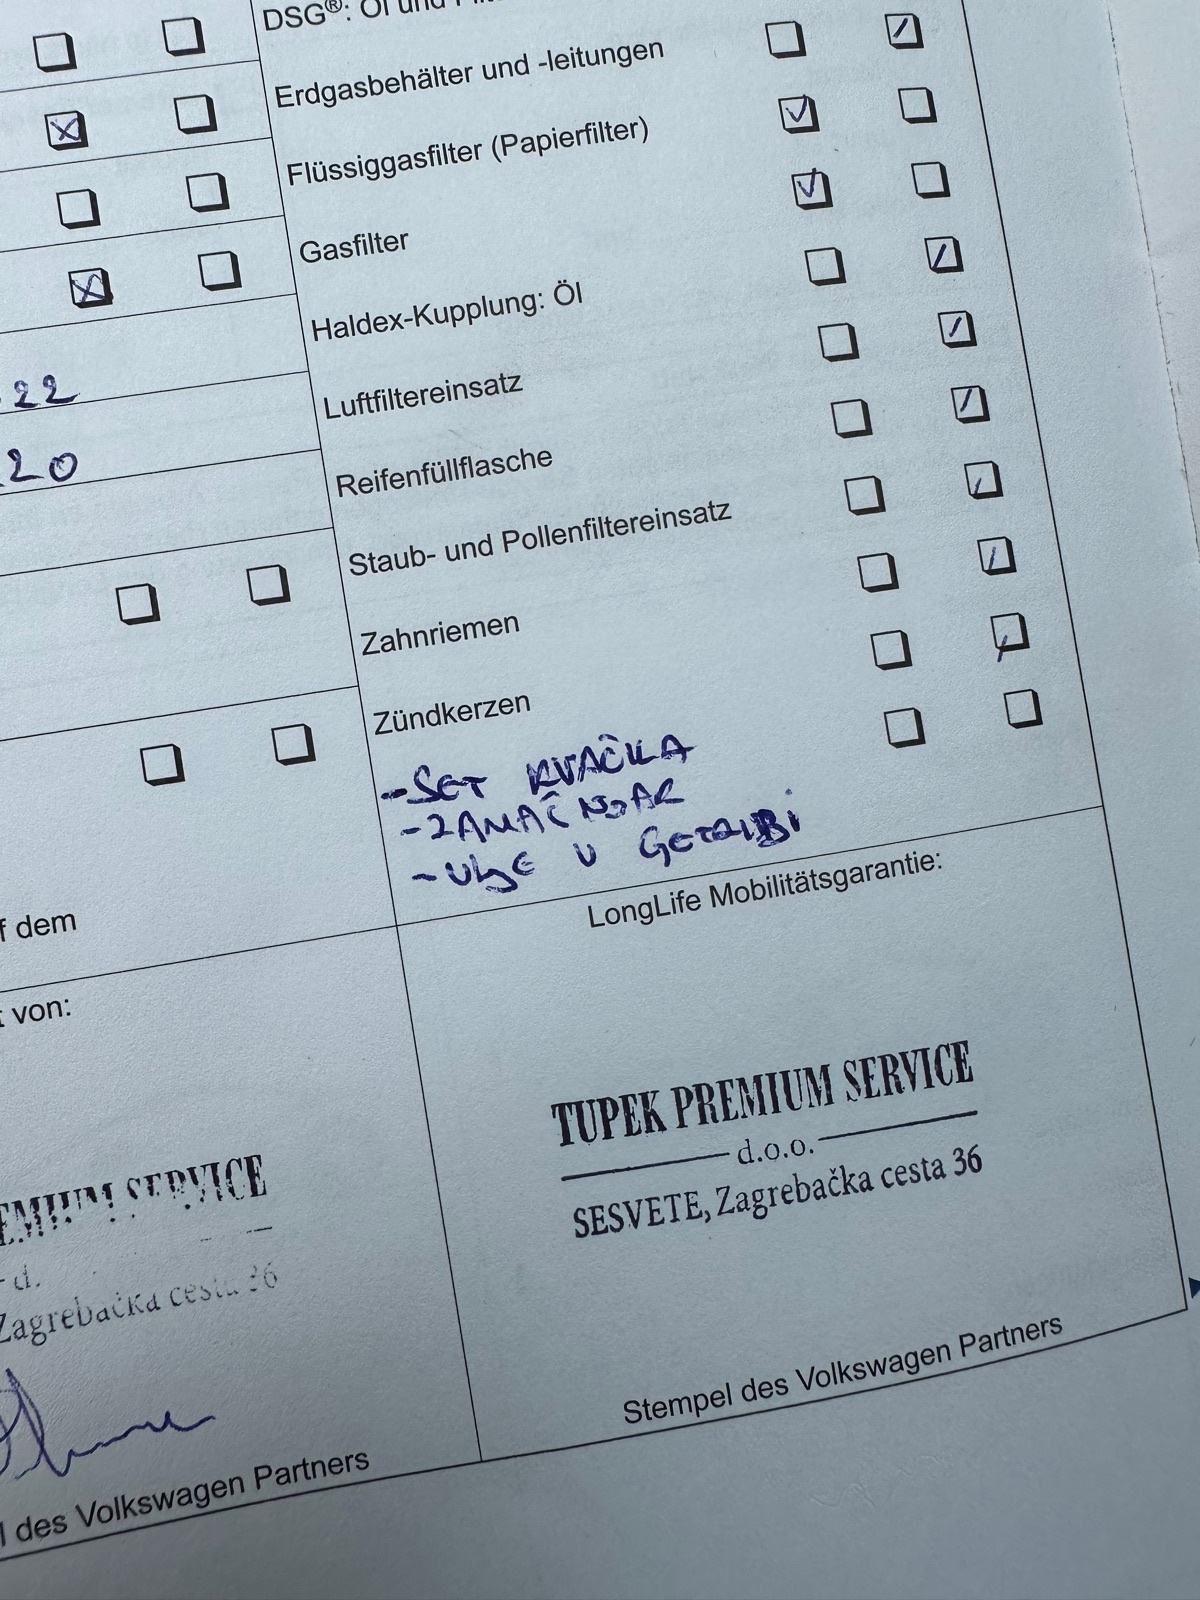 DSG®: Öl und
Erdgasbehälter und -leitungen
Flüssiggasfilter (Papierfilter)
Gasfilter
Haldex-Kupplung: Öl
22
Luftfiltereinsatz
20
Reifenfüllflasche
Staub- und Pollenfiltereinsatz
Zahnriemen
Zündkerzen
-SET KVAČKA
-ZAMAČNJAK
-ULJE U GETRIBI
f dem
LongLife Mobilitätsgarantie:
von:
TUPEK PREMIUM SERVICE
d.o.o.
SESVETE, Zagrebačka cesta 36
EMIUM SERVICE
d.
Zagrebačka cesta 36
Stempel des Volkswagen Partners
l des Volkswagen Partners